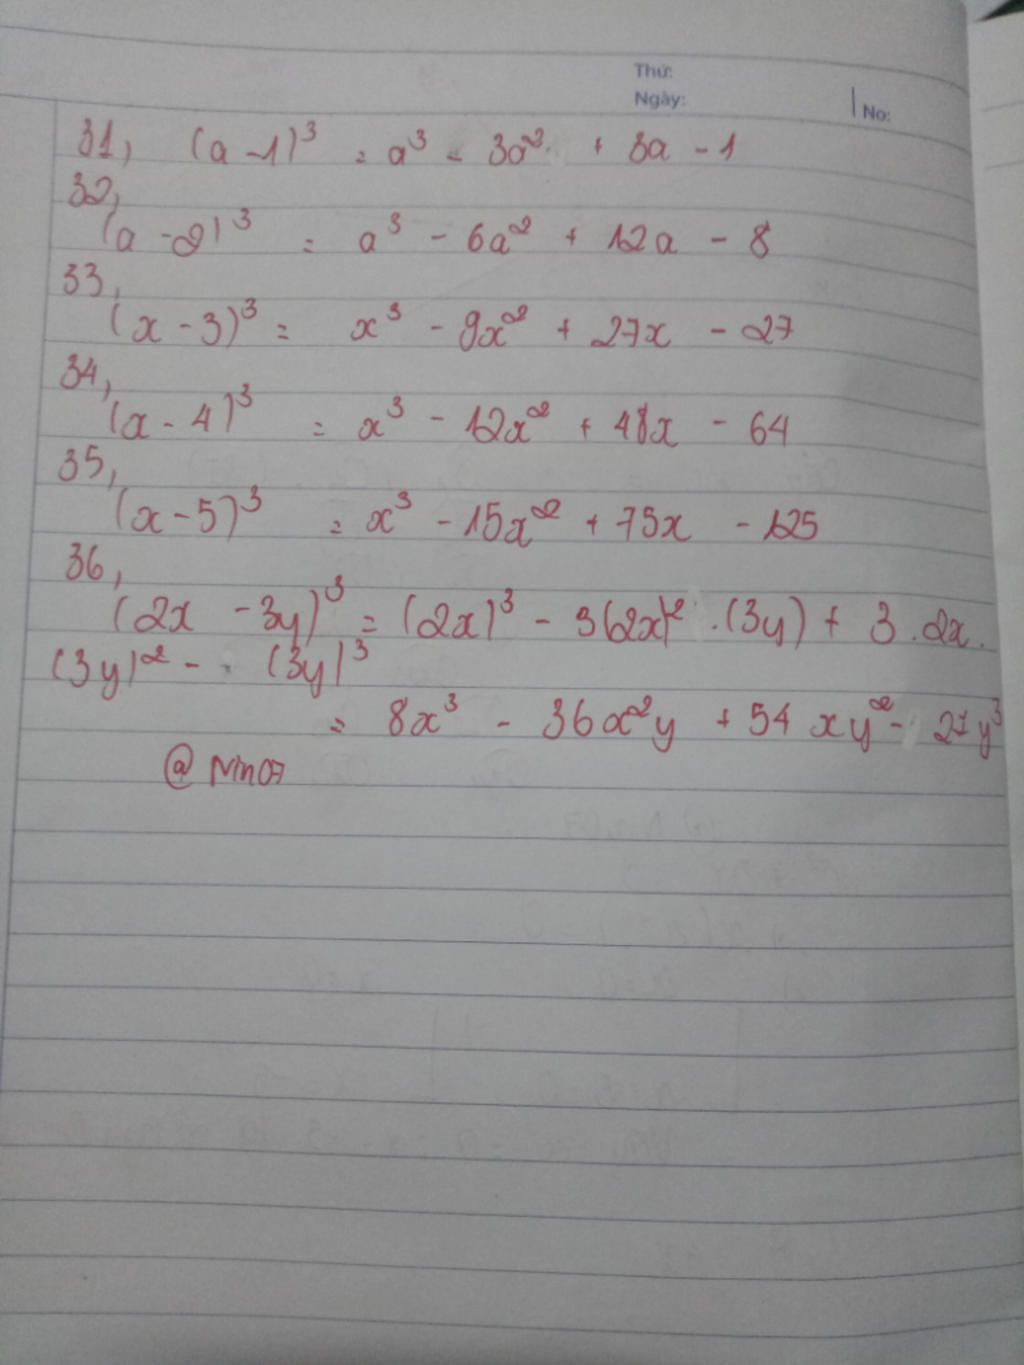 Thứ:
Ngày:
No:
31, (a - 1)³ = a³ - 3a² + 3a - 1
32,
(a - 2)³ = a³ - 6a² + 12a - 8
33,
(x - 3)³ = x³ - 9x² + 27x - 27
34,
(x - 4)³ = x³ - 12x² + 48x - 64
35,
(x - 5)³ = x³ - 15x² + 75x - 125
36,
(2x - 3y)³ = (2x)³ - 3(2x)² . (3y) + 3 . 2x .
(3y)² - (3y)³
= 8x³ - 36x²y + 54xy² - 27y³
@ Nmo7